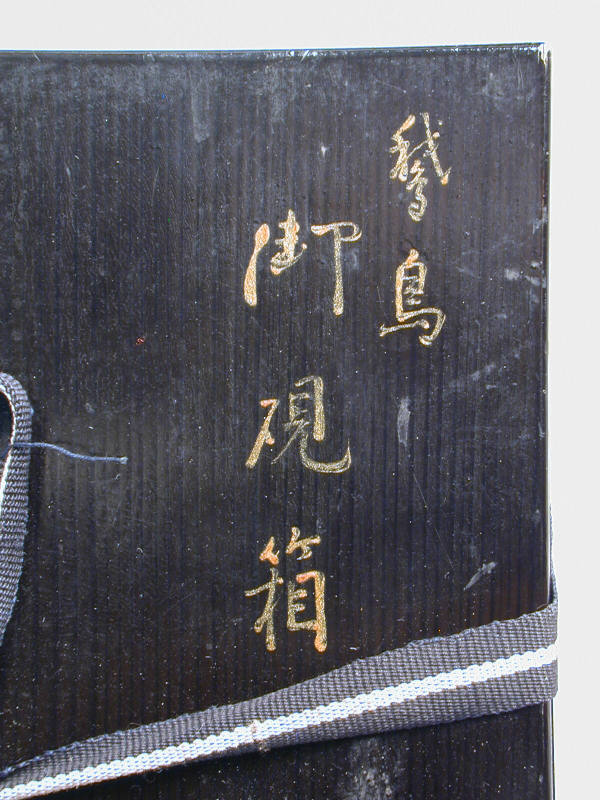 鵞鳥
御硯箱